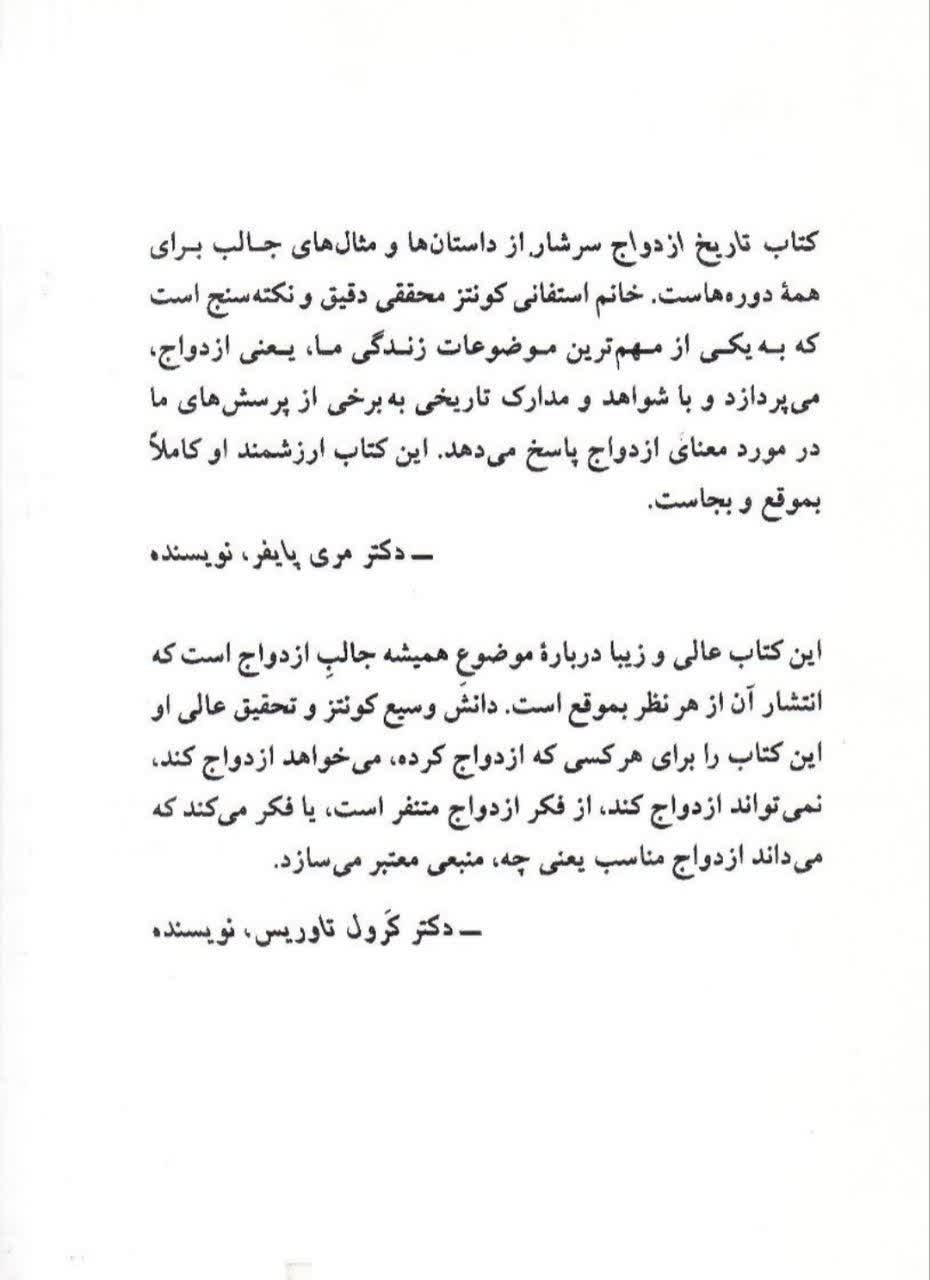 کتاب تاریخ ازدواج سرشار از داستان‌ها و مثال‌های جالب برای
همهٔ دوره‌هاست. خانم استفانی کونتز محققی دقیق و نکته‌سنج است
که به یکی از مهم‌ترین موضوعات زندگی ما، یعنی ازدواج،
می‌پردازد و با شواهد و مدارک تاریخی به برخی از پرسش‌های ما
در مورد معنای ازدواج پاسخ می‌دهد. این کتاب ارزشمند او کاملاً
بموقع و بجاست.
ــ دکتر مری پایفر، نویسنده
این کتاب عالی و زیبا دربارهٔ موضوعِ همیشه جالبِ ازدواج است که
انتشار آن از هر نظر بموقع است. دانش وسیع کونتز و تحقیق عالی او
این کتاب را برای هر کسی که ازدواج کرده، می‌خواهد ازدواج کند،
نمی‌تواند ازدواج کند، از فکر ازدواج متنفر است، یا فکر می‌کند که
می‌داند ازدواج مناسب یعنی چه، منبعی معتبر می‌سازد.
ــ دکتر کَرول تاوریس، نویسنده